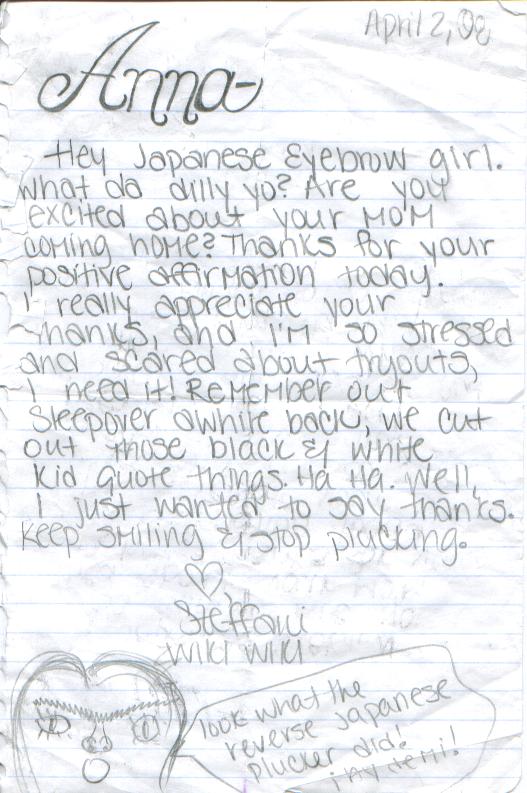 April 2, 02
Anna-
Hey Japanese Eyebrow girl.
What da dilly yo? Are you
excited about your mom
coming home? Thanks for your
positive affirmation today.
I really appreciate your
Thanks, and I'm so stressed
and scared about tryouts,
I need it! Remember out
sleepover awhile back, we cut
out those black & white
kid quote things. Ha Ha. Well,
I just wanted to say thanks.
Keep smiling & stop plucking.
♡
Steffani
WIKI WIKI
look what the
reverse Japanese
plucker did!